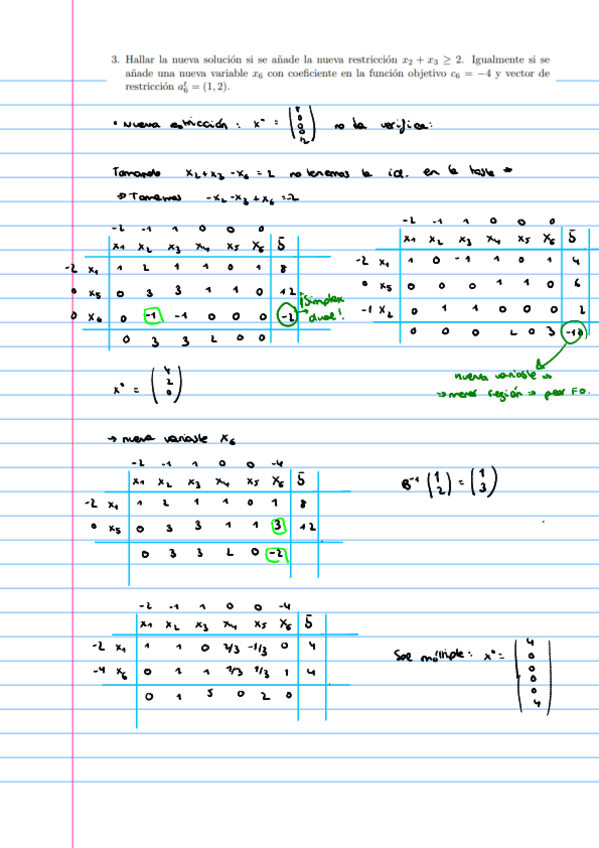 3. Hallar la nueva solución si se añade la nueva restricción x₂ + x₃ ≥ 2. Igualmente si se
añade una nueva variable x₆ con coeficiente en la función objetivo c₆ = −4 y vector de
restricción aᵗ₆ = (1, 2).
• Nueva restricción: x* = no la verifica:
Tomando x₂+x₃-x₆ = 2 no tenemos la id. en la base ⇒
⇒ Tomamos -x₂-x₃+x₆ =-2
-2 -1 1 0 0 0
x₁ x₂ x₃ x₄ x₅ x₆ b
-2 x₁ 1 2 1 1 0 1 8
0 x₅ 0 3 3 1 1 0 12
0 x₆ 0 -1 -1 0 0 0 -2
0 3 3 2 0 0
¡Simplex
dual!
-2 -1 1 0 0 0
x₁ x₂ x₃ x₄ x₅ x₆ b
-2 x₁ 1 0 -1 1 0 1 4
0 x₅ 0 0 0 1 1 0 6
-1 x₂ 0 1 1 0 0 0 2
0 0 0 2 0 3 -10
nueva variable ⇒
⇒ menor región ⇒ peor F.O.
x* = (4 2 0)
→ nueva variable x₆
-2 -1 1 0 0 -4
x₁ x₂ x₃ x₄ x₅ x₆ b
-2 x₁ 1 2 1 1 0 1 8
0 x₅ 0 3 3 1 1 3 12
0 3 3 2 0 -2
B⁻¹ (1 2) = (1 3)
-2 -1 1 0 0 -4
x₁ x₂ x₃ x₄ x₅ x₆ b
-2 x₁ 1 1 0 2/3 -1/3 0 4
-4 x₆ 0 1 1 1/3 1/3 1 4
0 1 5 0 2 0
Sol múltiple: x* = (4 0 0 0 0 4)